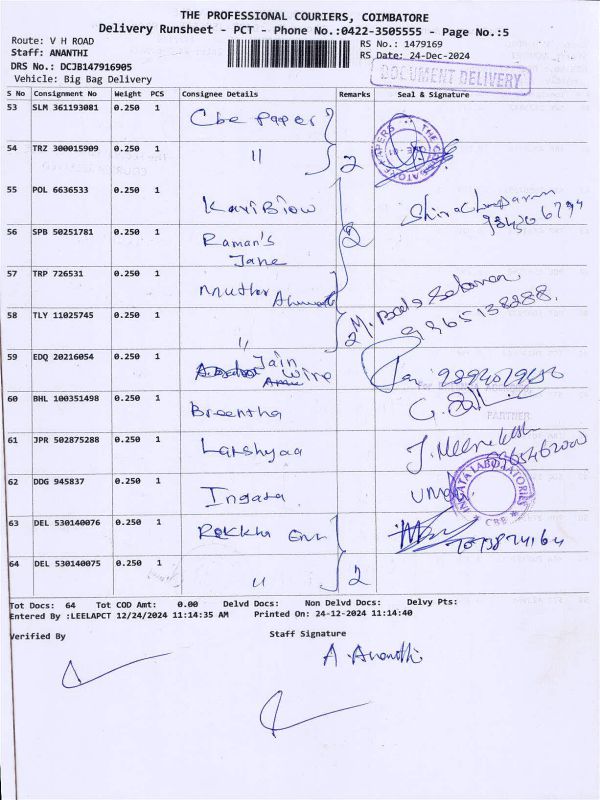 THE PROFESSIONAL COURIERS, COIMBATORE
Delivery Runsheet - PCT - Phone No.:0422-3505555 - Page No.:5
Route: V H ROAD
Staff: ANANTHI
DRS No.: DCJB147916905
Vehicle: Big Bag Delivery
RS No.: 1479169
RS Date: 24-Dec-2024
DOCUMENT DELIVERY
S No Consignment No Weight PCS Consignee Details Remarks Seal & Signature
53 SLM 361193081 0.250 1 Cbe Paper
54 TRZ 300015909 0.250 1 " 2
55 POL 6636533 0.250 1
56 SPB 50251781 0.250 1 Raman's Jane 2
57 TRP 726531 0.250 1
58 TLY 11025745 0.250 1 " 2
59 EDQ 20216054 0.250 1 Jain Wire
60 BHL 100351498 0.250 1 Breentha
PARTNER
61 JPR 502875288 0.250 1 Lakshyaa
62 DDG 945837 0.250 1
63 DEL 530140076 0.250 1
64 DEL 530140075 0.250 1 " 2
Tot Docs: 64 Tot COD Amt: 0.00 Delvd Docs: Non Delvd Docs: Delvy Pts:
Entered By :LEELAPCT 12/24/2024 11:14:35 AM Printed On: 24-12-2024 11:14:40
Verified By
Staff Signature
A. Ananthi